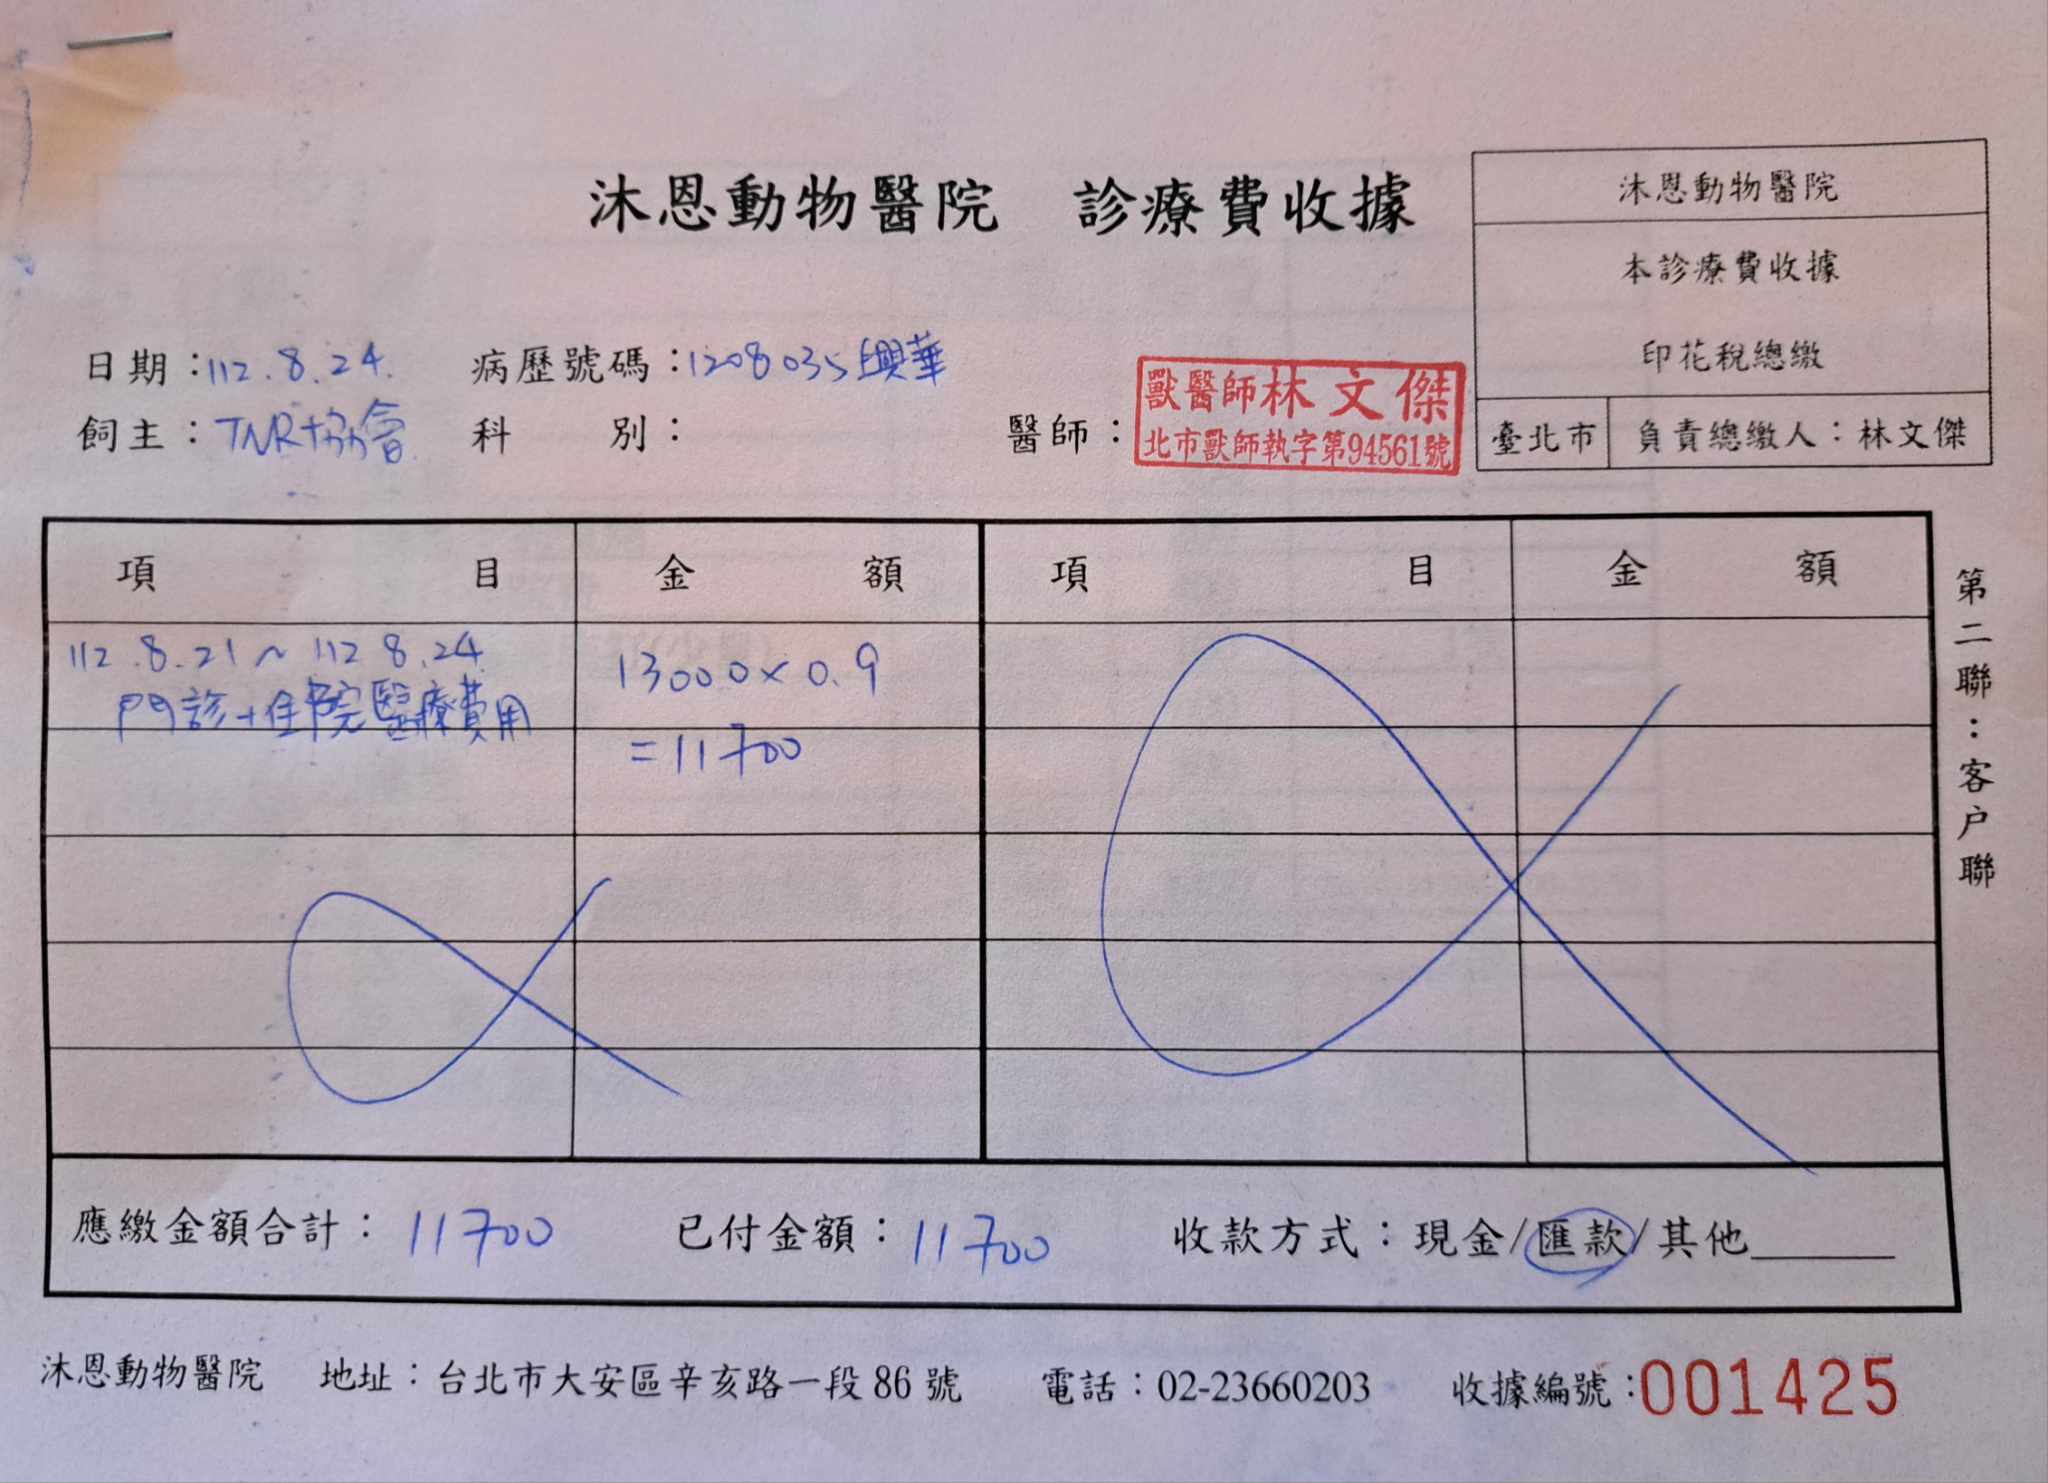 沐恩動物醫院 診療費收據
沐恩動物醫院
本診療費收據
印花稅總繳
臺北市 負責總繳人：林文傑
日期：112.8.24. 病歷號碼：1208035 興華
飼主：TNR協會 科別： 醫師：
獸醫師林文傑
北市獸師執字第94561號
項目 金額 項目 金額
112.8.21~112 8.24
13000×0.9
門診+住院醫療費用
=11700
應繳金額合計：11700 已付金額：11700 收款方式：現金/匯款/其他
第二聯：客戶聯
沐恩動物醫院 地址：台北市大安區辛亥路一段86號 電話：02-23660203 收據編號：001425